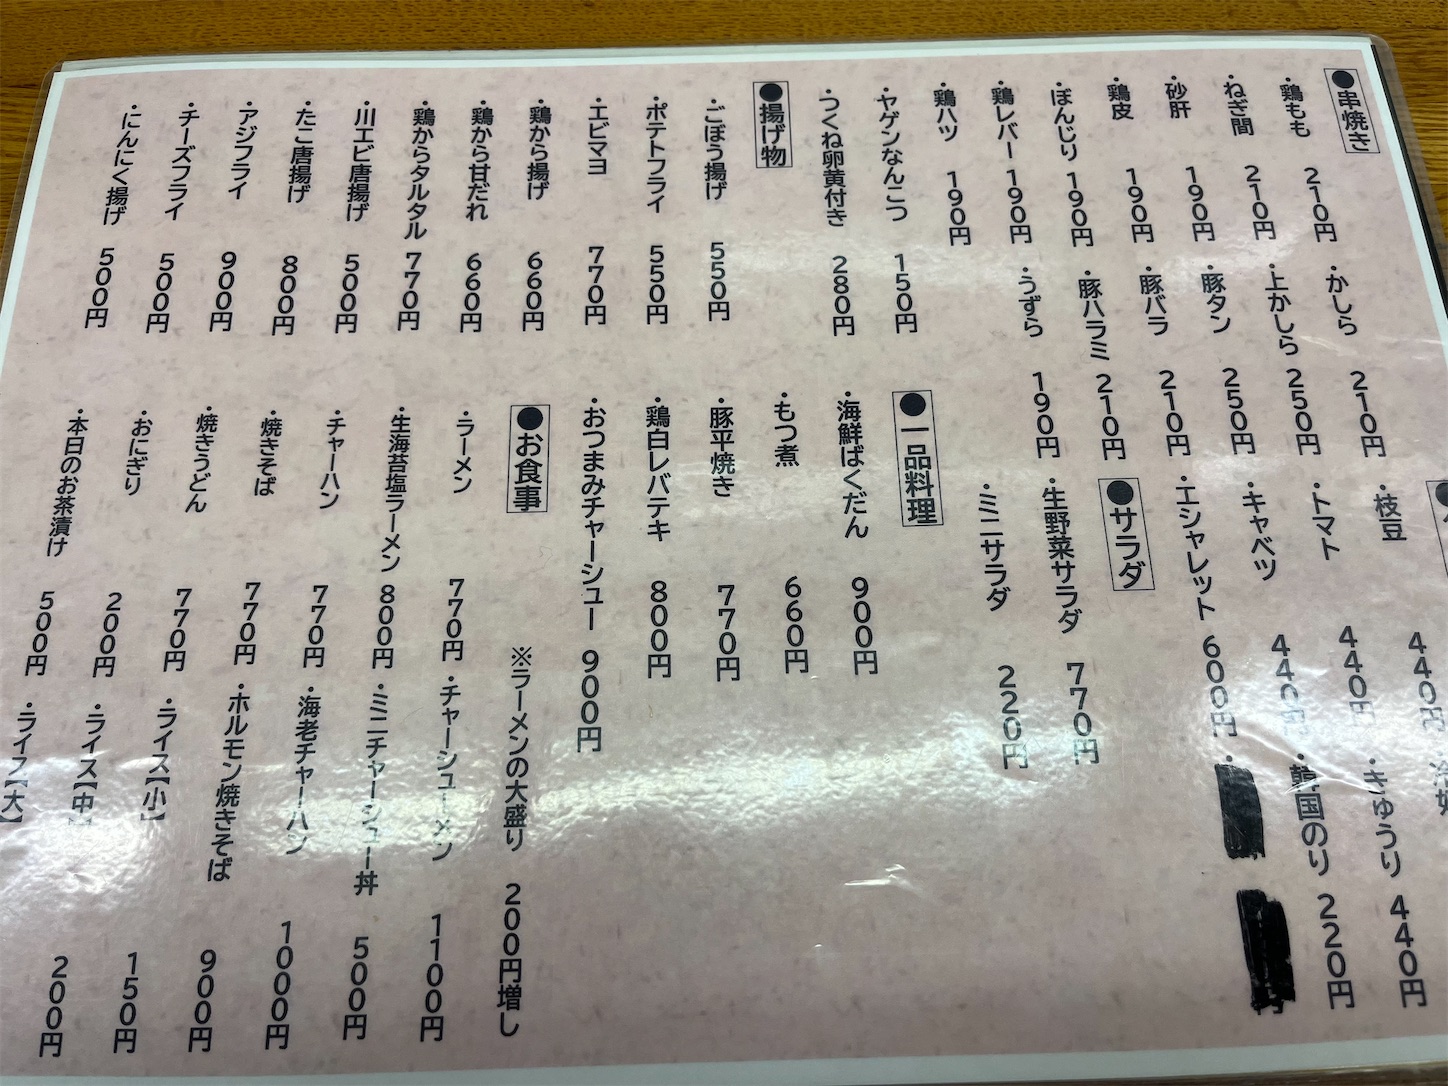 ●串焼き
・鶏もも 210円
・ねぎ間 210円
・砂肝 190円
・鶏皮 190円
・ぼんじり 190円
・鶏レバー 190円
・鶏ハツ 190円
・ヤゲンなんこつ 150円
・つくね卵黄付き 280円
・かしら 210円
・上かしら 250円
・豚タン 250円
・豚バラ 210円
・豚ハラミ 210円
・うずら 190円
●揚げ物
・ごぼう揚げ 550円
・ポテトフライ 550円
・エビマヨ 770円
・鶏から揚げ 660円
・鶏から甘だれ 660円
・鶏からタルタル 770円
・川エビ唐揚げ 500円
・たこ唐揚げ 800円
・アジフライ 900円
・チーズフライ 500円
・にんにく揚げ 500円
・枝豆 440円
・トマト 440円
・キャベツ 440円
・エシャレット 600円
・きゅうり 440円
・韓国のり 220円
●サラダ
・生野菜サラダ 770円
・ミニサラダ 220円
●一品料理
・海鮮ばくだん 900円
・もつ煮 660円
・豚平焼き 770円
・鶏白レバテキ 800円
・おつまみチャーシュー 900円
●お食事
※ラーメンの大盛り 200円増し
・ラーメン 770円
・生海苔塩ラーメン 800円
・チャーハン 770円
・焼きそば 770円
・焼きうどん 770円
・おにぎり 200円
・本日のお茶漬け 500円
・チャーシューメン 1100円
・ミニチャーシュー丼 500円
・海老チャーハン 1000円
・ホルモン焼きそば 900円
・ライス【小】 150円
・ライス【中】 200円
・ライス【大】